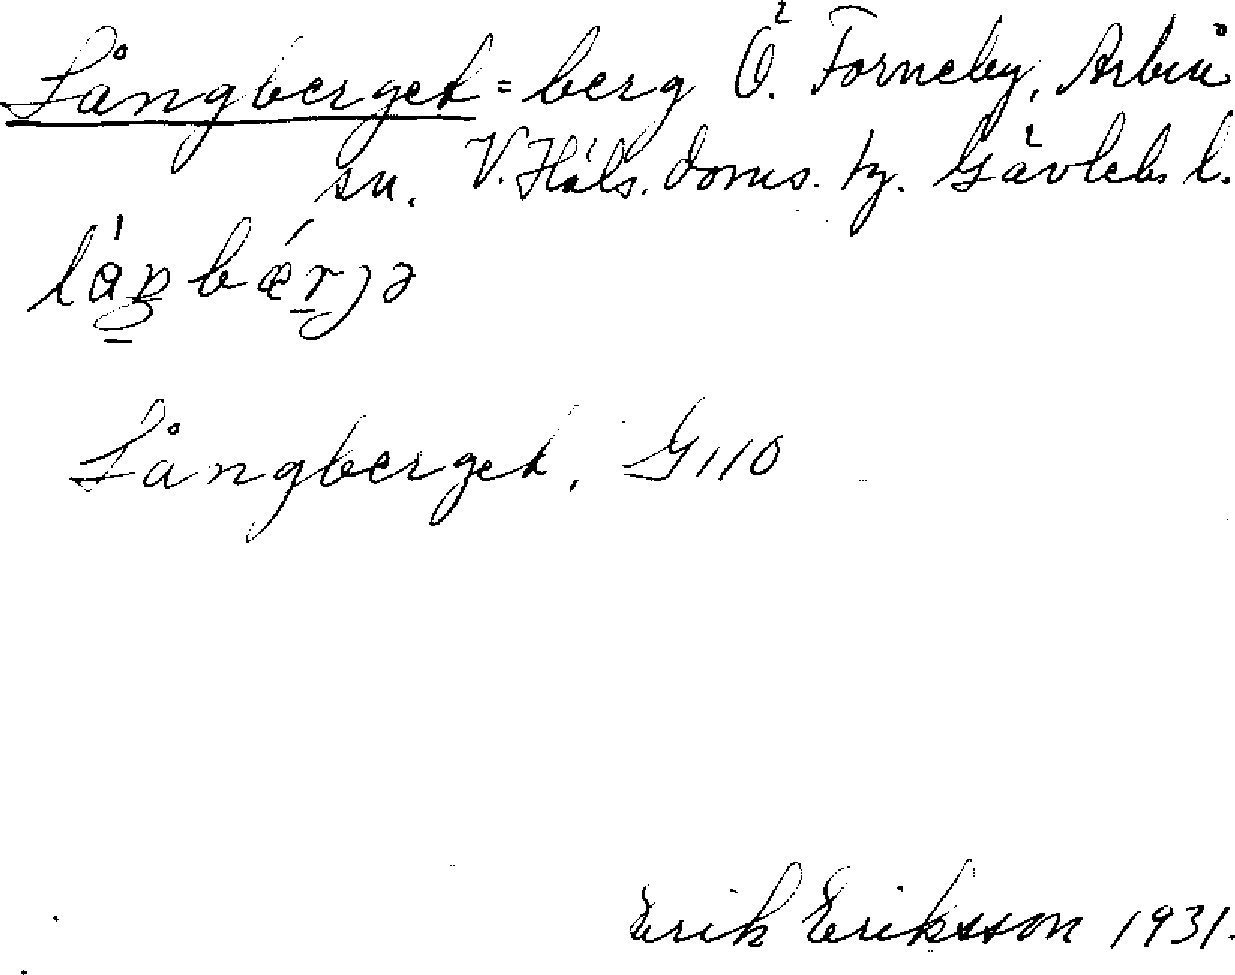 Långberget = berg Ö. Forneby, Arbrå
sn. V. Häls. doms. tg. Gävlebs l.
Långberget, G110
Erik Eriksson 1931.